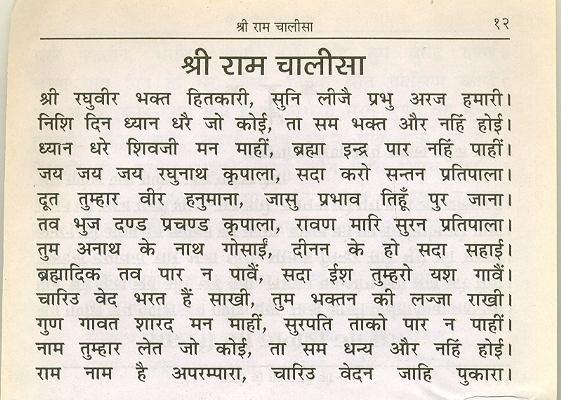 श्री राम चालीसा १२
श्री राम चालीसा
श्री रघुवीर भक्त हितकारी, सुनि लीजै प्रभु अरज हमारी।
निशि दिन ध्यान धरै जो कोई, ता सम भक्त और नहिं होई।
ध्यान धरे शिवजी मन माहीं, ब्रह्मा इन्द्र पार नहिं पाहीं।
जय जय जय रघुनाथ कृपाला, सदा करो सन्तन प्रतिपाला।
दूत तुम्हार वीर हनुमाना, जासु प्रभाव तिहूँ पुर जाना।
तव भुज दण्ड प्रचण्ड कृपाला, रावण मारि सुरन प्रतिपाला।
तुम अनाथ के नाथ गोसाईं, दीनन के हो सदा सहाई।
ब्रह्मादिक तव पार न पावैं, सदा ईश तुम्हरो यश गावैं।
चारिउ वेद भरत हैं साखी, तुम भक्तन की लज्जा राखी।
गुण गावत शारद मन माहीं, सुरपति ताको पार न पाहीं।
नाम तुम्हार लेत जो कोई, ता सम धन्य और नहिं होई।
राम नाम है अपरम्पारा, चारिउ वेदन जाहि पुकारा।